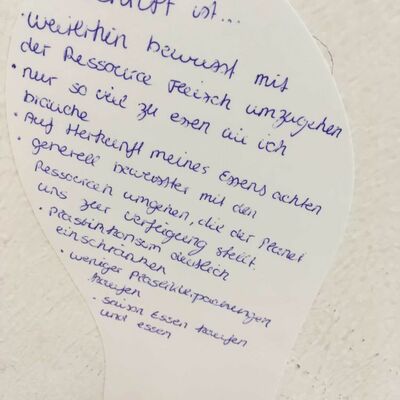 ist...
• weiterhin bewusst mit
der Ressource Fleisch umzugehen
• nur so viel zu essen wie ich
brauche
• Auf Herkunft meines Essens achten
• generell bewusster mit den
Ressourcen umgehen, die der Planet
uns zur verfügung stellt.
• Plastikkonsum deutlich
einschränken
• weniger Plastikverpackungen
kaufen
• saison Essen kaufen
und essen